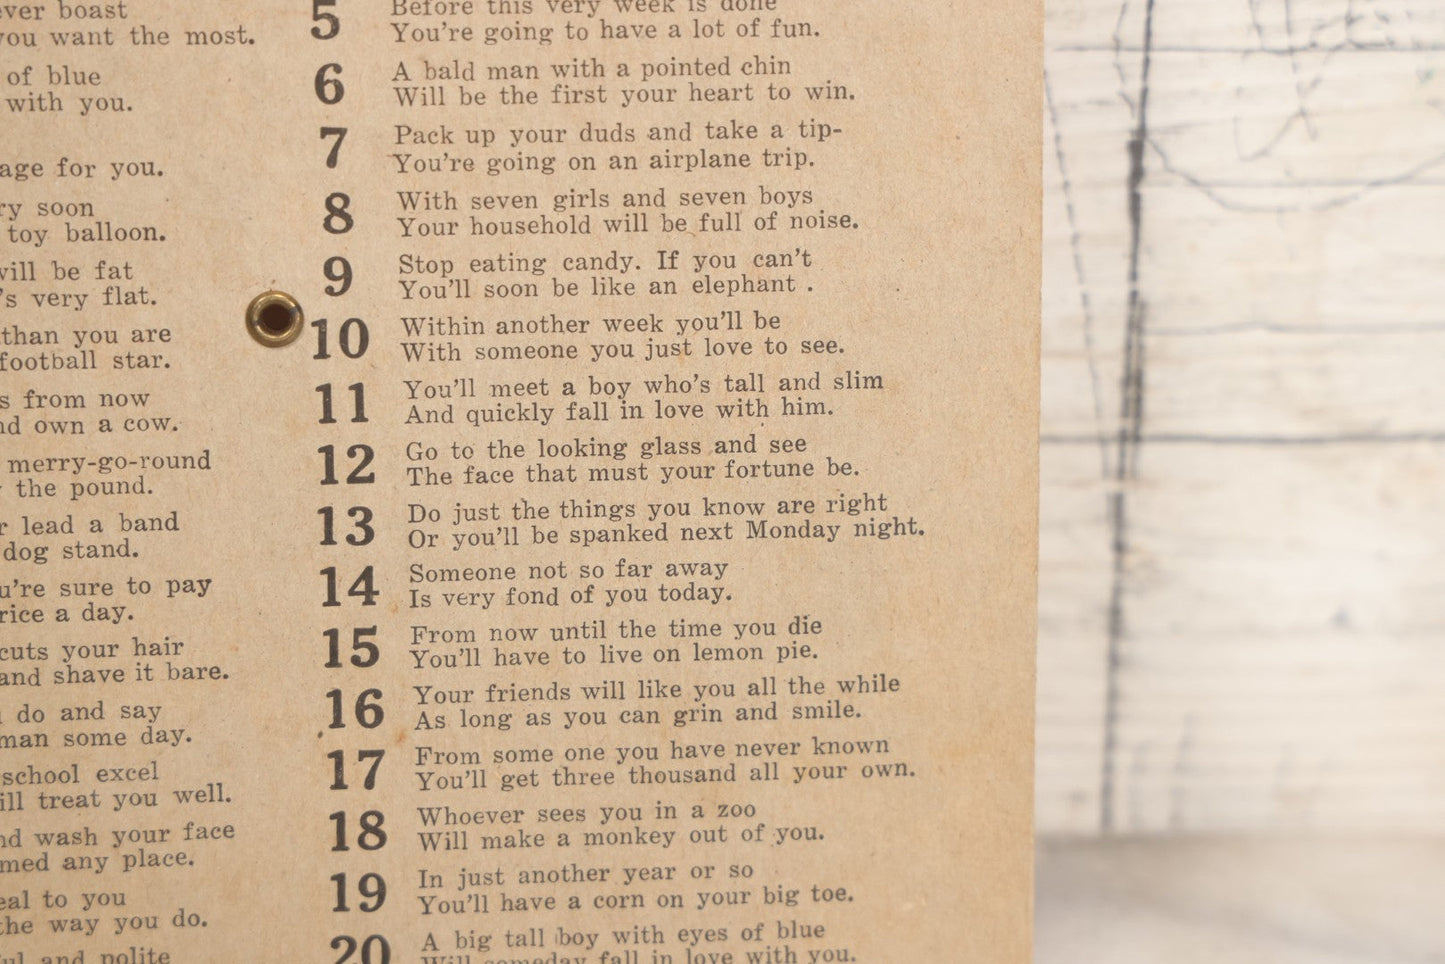 ever boast
you want the most.
of blue
with you.
age for you.
ry soon
toy balloon.
will be fat
's very flat.
than you are
football star.
s from now
nd own a cow.
merry-go-round
the pound.
r lead a band
dog stand.
u're sure to pay
rice a day.
cuts your hair
and shave it bare.
do and say
man some day.
school excel
ill treat you well.
nd wash your face
med any place.
eal to you
the way you do.
ul and polite
5 Before this very week is done
You're going to have a lot of fun.
6 A bald man with a pointed chin
Will be the first your heart to win.
7 Pack up your duds and take a tip-
You're going on an airplane trip.
8 With seven girls and seven boys
Your household will be full of noise.
9 Stop eating candy. If you can't
You'll soon be like an elephant .
10 Within another week you'll be
With someone you just love to see.
11 You'll meet a boy who's tall and slim
And quickly fall in love with him.
12 Go to the looking glass and see
The face that must your fortune be.
13 Do just the things you know are right
Or you'll be spanked next Monday night.
14 Someone not so far away
Is very fond of you today.
15 From now until the time you die
You'll have to live on lemon pie.
16 Your friends will like you all the while
As long as you can grin and smile.
17 From some one you have never known
You'll get three thousand all your own.
18 Whoever sees you in a zoo
Will make a monkey out of you.
19 In just another year or so
You'll have a corn on your big toe.
20 A big tall boy with eyes of blue
Will someday fall in love with you.